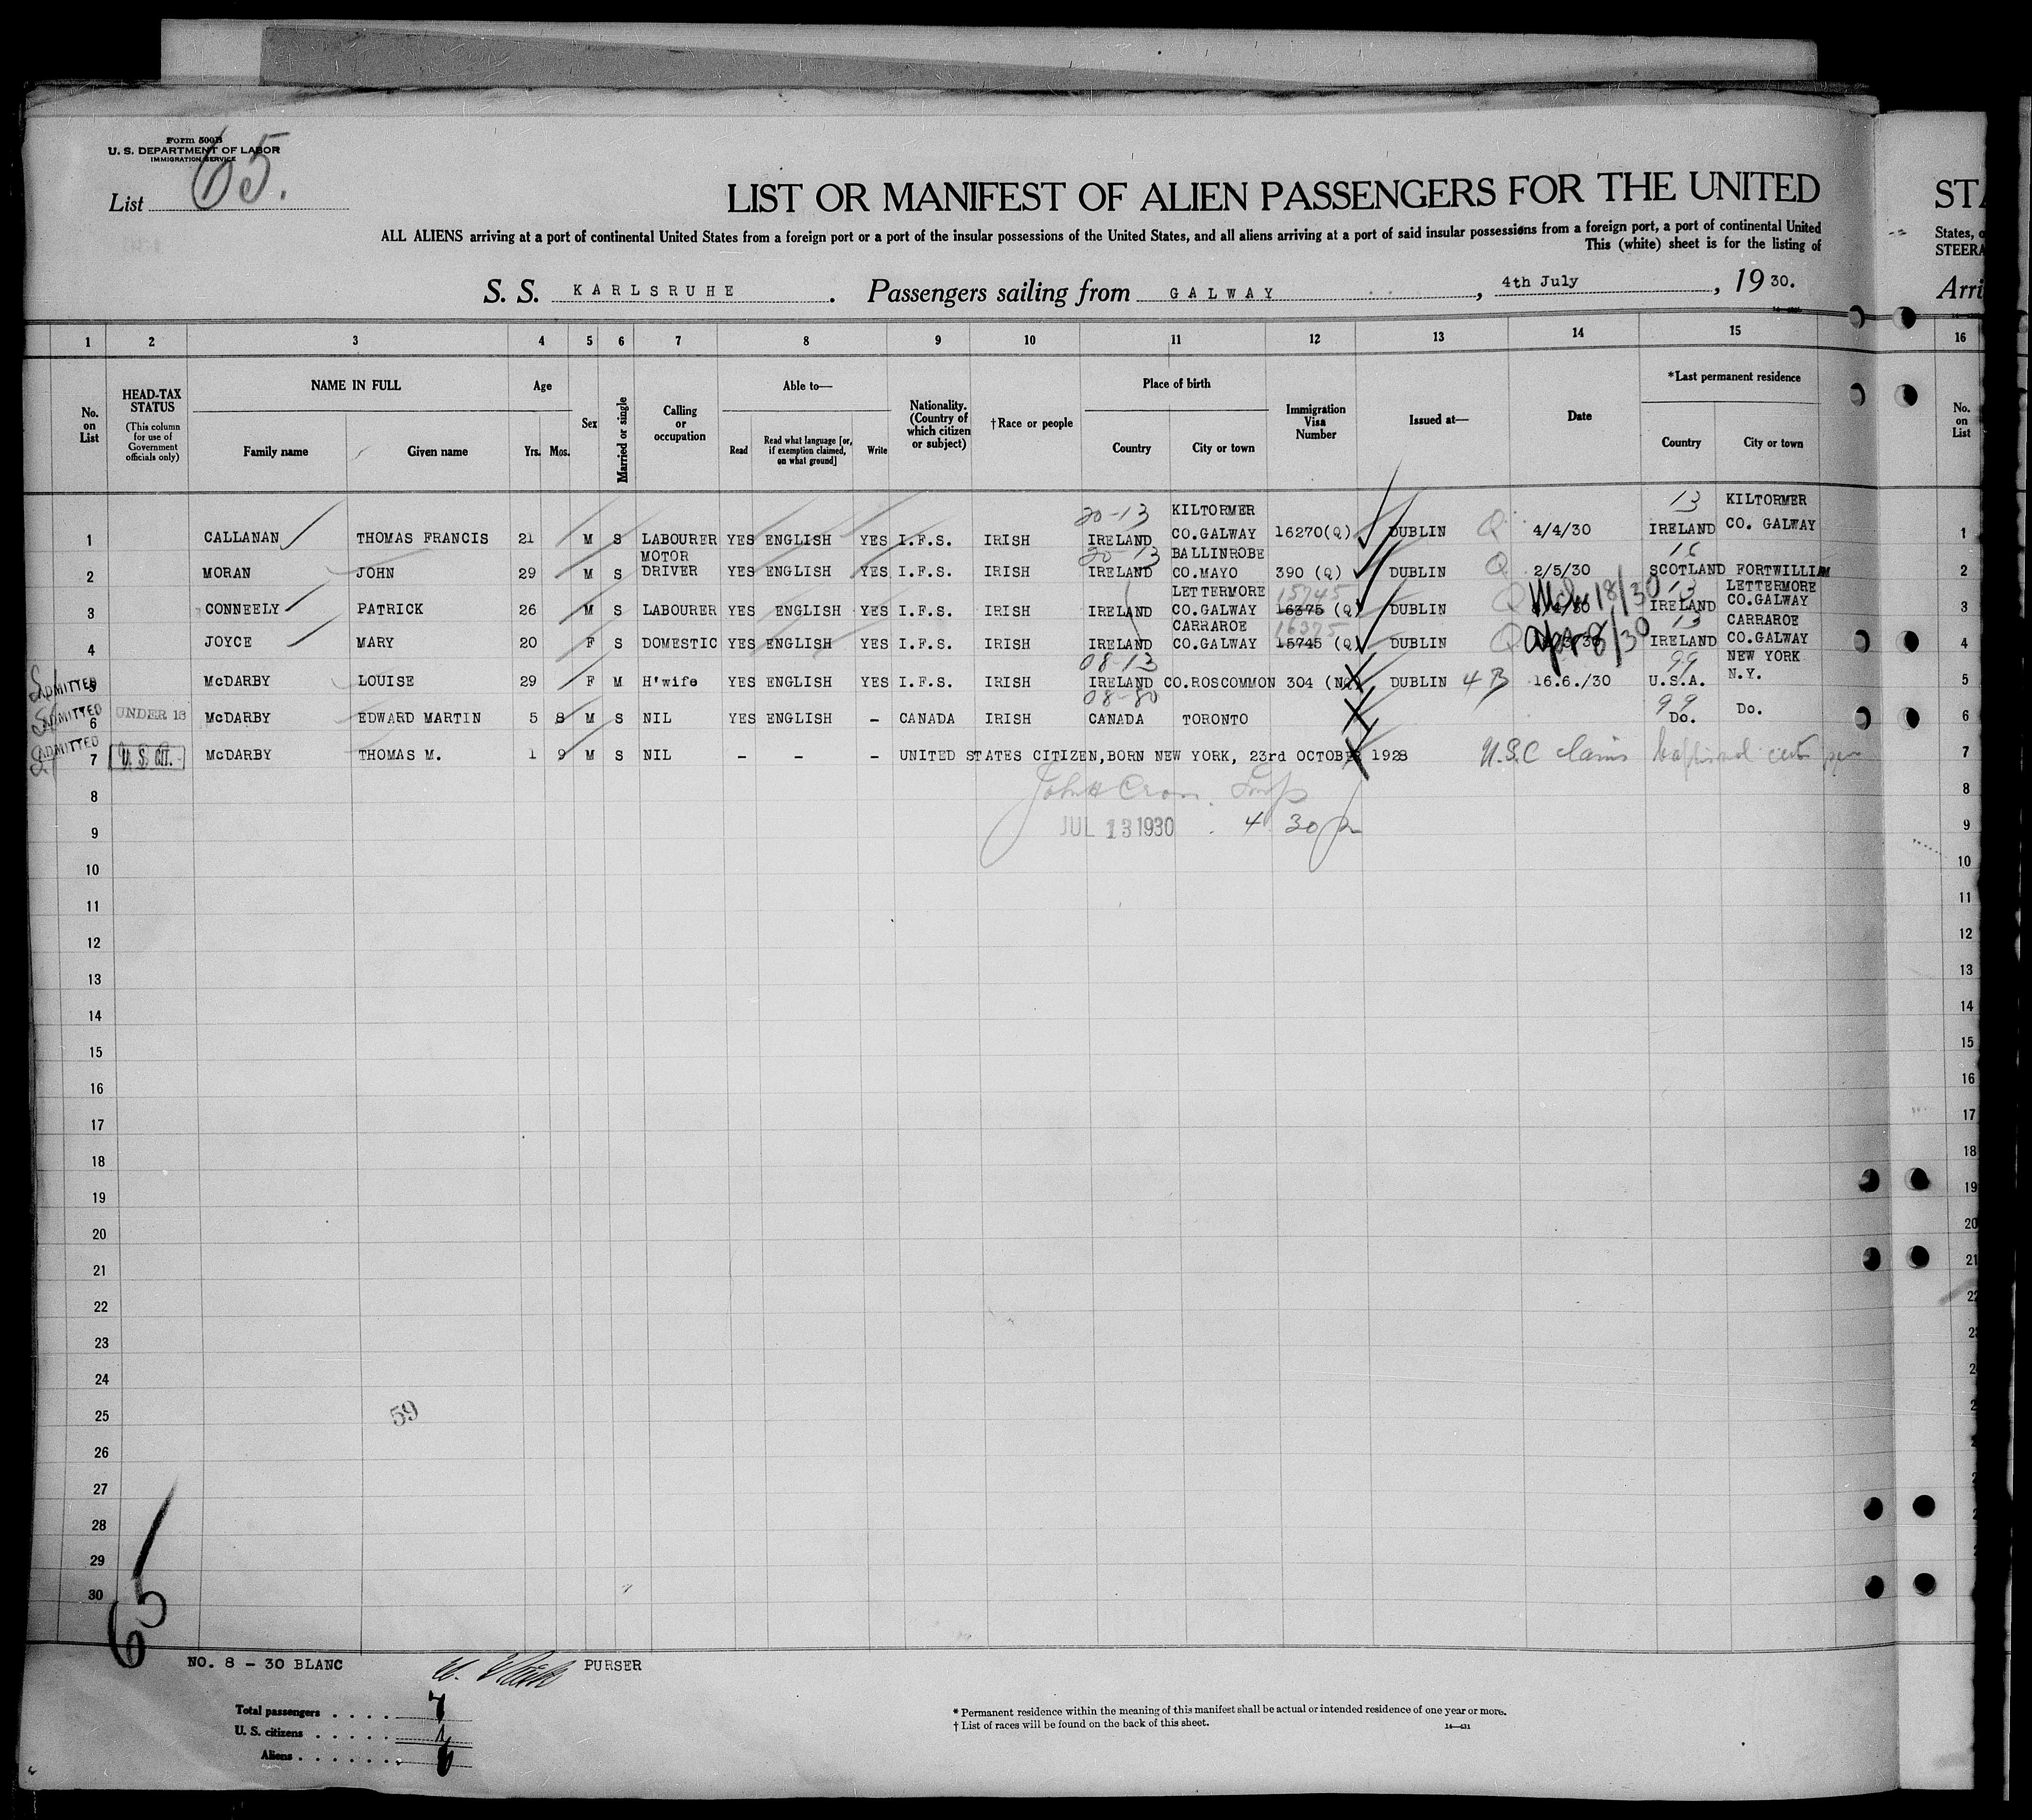 Form 500B
U. S. DEPARTMENT OF LABOR
IMMIGRATION SERVICE
List 65.
LIST OR MANIFEST OF ALIEN PASSENGERS FOR THE UNITED
STA
ALL ALIENS arriving at a port of continental United States from a foreign port or a port of the insular possessions of the United States, and all aliens arriving at a port of said insular possessions from a foreign port, a port of continental United
States, o
This (white) sheet is for the listing of
STEERA
S. S. KARLSRUHE . Passengers sailing from GALWAY , 4th July , 19 30.
Arri
1 2 3 4 5 6 7 8 9 10 11 12 13 14 15 16
No. on List
HEAD-TAX STATUS
(This column for use of Government officials only)
NAME IN FULL
Family name Given name
Age
Yrs. Mos.
Sex
Married or single
Calling or occupation
Able to—
Read Read what language [or, if exemption claimed, on what ground] Write
Nationality. (Country of which citizen or subject)
†Race or people
Place of birth
Country City or town
Immigration Visa Number
Issued at—
Date
*Last permanent residence
Country City or town
No. on List
20-13 KILTORMER 13 KILTORMER
1 CALLANAN THOMAS FRANCIS 21 M S LABOURER YES ENGLISH YES I.F.S. IRISH IRELAND CO.GALWAY 16270(Q) DUBLIN Q 4/4/30 IRELAND CO. GALWAY 1
MOTOR 20-13 BALLINROBE
2 MORAN JOHN 29 M S DRIVER YES ENGLISH YES I.F.S. IRISH IRELAND CO.MAYO 390 (Q) DUBLIN Q 2/5/30 SCOTLAND FORTWILLIAM 2
LETTERMORE 15745 13 LETTERMORE
3 CONNEELY PATRICK 26 M S LABOURER YES ENGLISH YES I.F.S. IRISH IRELAND CO.GALWAY 16375 (Q) DUBLIN Q Mch 18/30 IRELAND CO.GALWAY 3
CARRAROE 16375 13 CARRAROE
4 JOYCE MARY 20 F S DOMESTIC YES ENGLISH YES I.F.S. IRISH IRELAND CO.GALWAY 15745 (Q) DUBLIN Q Apr 8/30 IRELAND CO.GALWAY 4
08-13 99 NEW YORK
ADMITTED 5 McDARBY LOUISE 29 F M H'wife YES ENGLISH YES I.F.S. IRISH IRELAND CO.ROSCOMMON 304 (NQ) DUBLIN 4 B 16.6./30 U.S.A. N.Y. 5
08-80 99
ADMITTED 6 UNDER 16 McDARBY EDWARD MARTIN 5 8 M S NIL YES ENGLISH - CANADA IRISH CANADA TORONTO Do. Do. 6
ADMITTED 7 U. S. CIT. McDARBY THOMAS M. 1 9 M S NIL - - - UNITED STATES CITIZEN,BORN NEW YORK, 23rd OCTOBER 1928 U.S.C claims baptismal 7
8 John H 8
9 JUL 13 1930 4 30 9
10 10
11 11
12 12
13 13
14 14
15 15
16 16
17 17
18 18
19 19
20 20
21 21
22 22
23
24
25 59
26
27
28
29
30
65
NO. 8 - 30 BLANC PURSER
Total passengers . . . . . 7
U. S. citizens . . . . . 1
Aliens . . . . . . . 6
* Permanent residence within the meaning of this manifest shall be actual or intended residence of one year or more.
† List of races will be found on the back of this sheet.
14—431